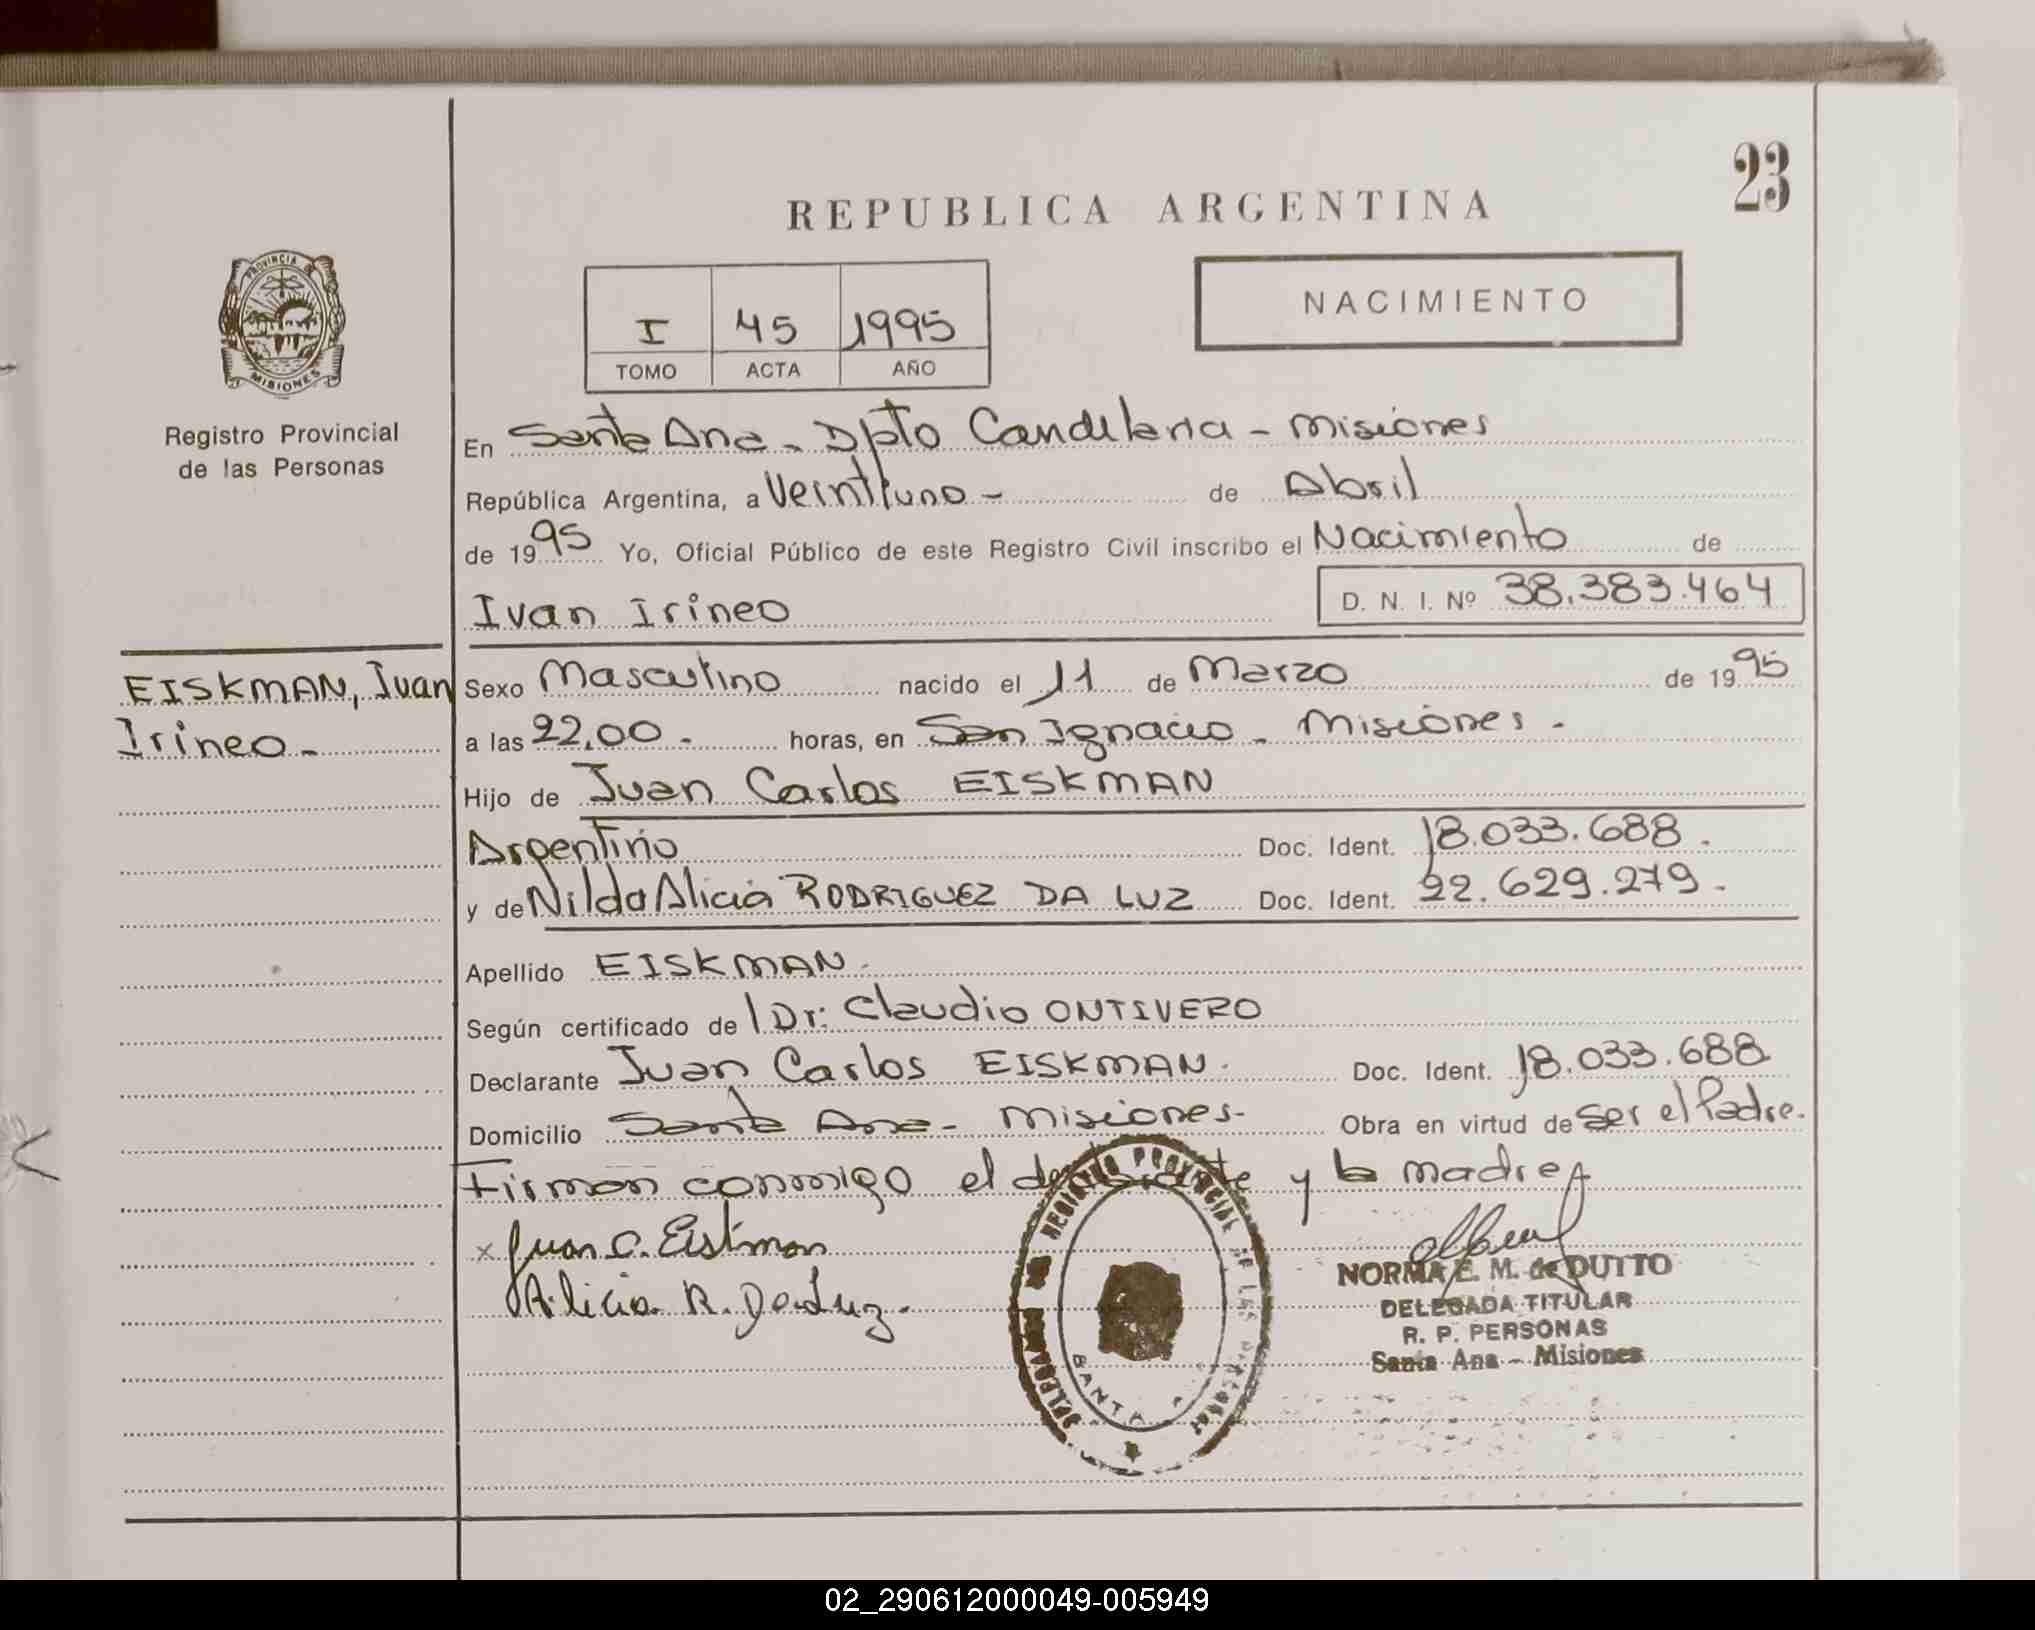 23
REPUBLICA ARGENTINA
NACIMIENTO
I 45 1995
TOMO ACTA AÑO
PROVINCIA
MISIONES
Registro Provincial
de las Personas
En Santa Ana - Dpto Candelaria - Misiones
República Argentina, a Veintiuno - de Abril
de 1995 Yo, Oficial Público de este Registro Civil inscribo el Nacimiento de
Ivan Irineo D. N. I. Nº 38.383.464
EISKMAN, Ivan
Irineo -
Sexo Masculino nacido el 11 de Marzo de 1995
a las 22,00 - horas, en San Ignacio - Misiones -
Hijo de Juan Carlos EISKMAN
Argentino Doc. Ident. 18.033.688.
y de Nilda Alicia RODRIGUEZ DA LUZ Doc. Ident. 22.629.279.
Apellido EISKMAN.
Según certificado de l Dr: Claudio ONTIVERO
Declarante Juan Carlos EISKMAN. Doc. Ident. 18.033.688
Domicilio Santa Ana - Misiones- Obra en virtud de ser el Padre.
Firman conmigo el declarante y la madre
x Juan C. Eiskman
Alicia R. Da Luz.
REGISTRO PROVINCIAL DE LAS
SANTA
NORMA E. M. de DUTTO
DELEGADA TITULAR
R. P. PERSONAS
Santa Ana - Misiones
02_290612000049-005949